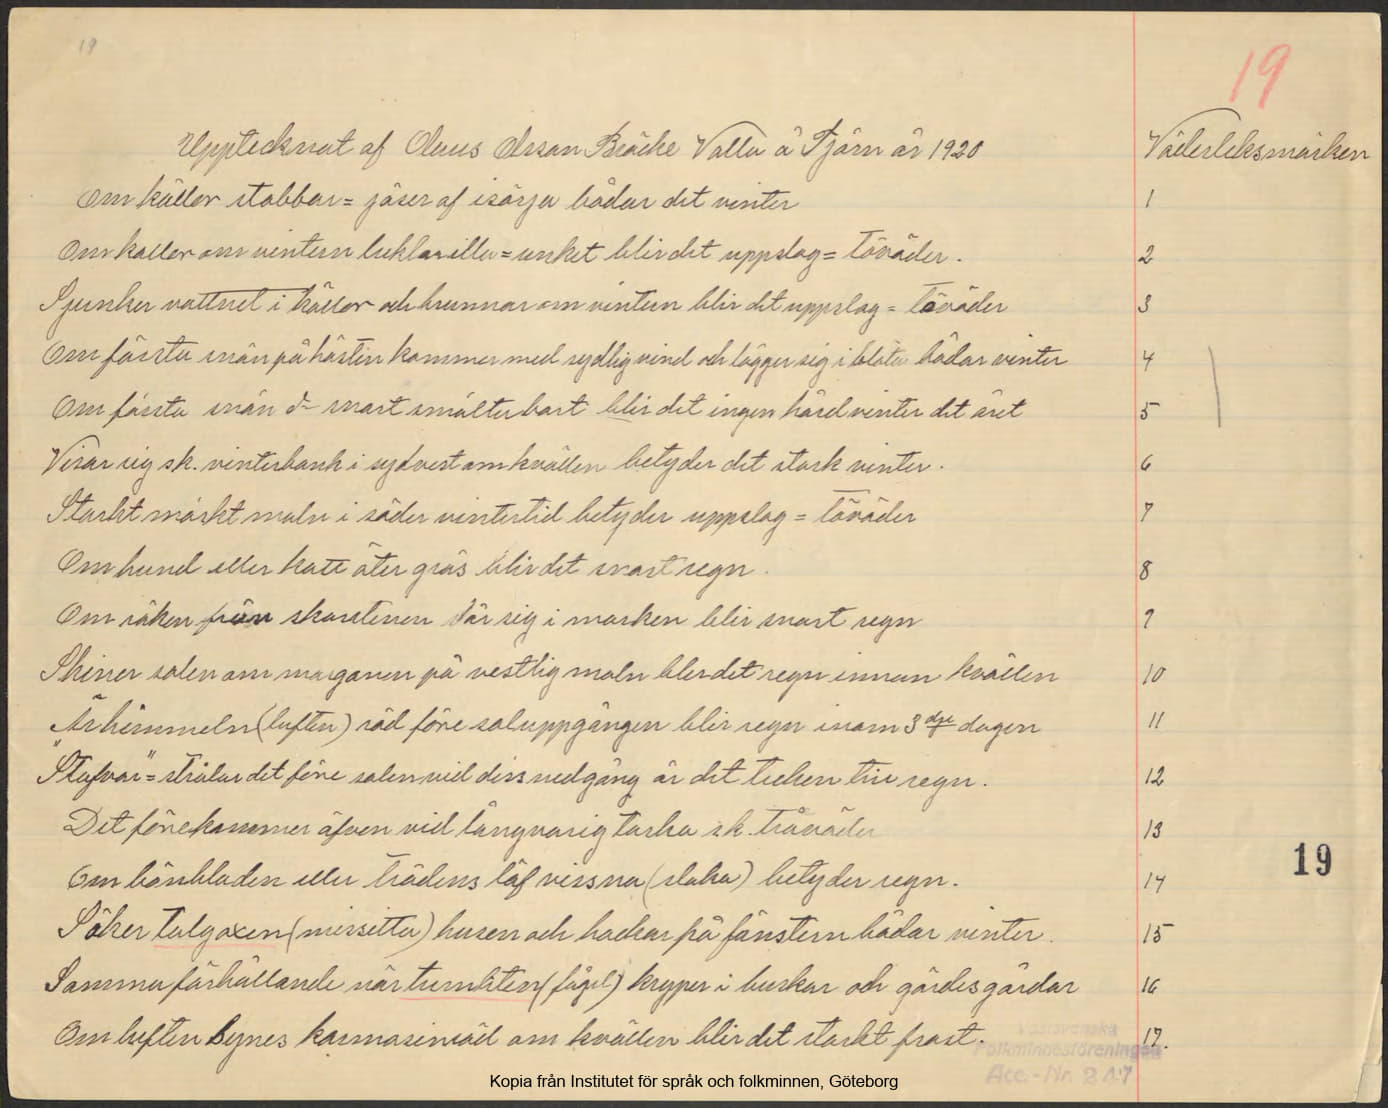 19
19
Upptecknat af Olaus Olsson Bräcke Valla å Tjörn år 1920 Väderleksmärken
Om källor stabbar = jäser af isörja bådar det vinter 1
Om kallor om vintern luktar illa = unket blir det uppslag = töväder. 2
Sjunker vattnet i källor och brunnar om vintern blir det uppslag = töväder 3
Om första snön på hösten kommer med sydlig vind och lägger sig i blöta bådar vinter 4
Om första snön snart smälter bort blir det ingen hård vinter det året 5
Visar sig sk. vinterbank i sydvest om kvällen betyder det stark vinter. 6
Starkt mörkt moln i söder vintertid betyder uppslag = töväder 7
Om hund eller katt äter gräs blir det snart regn. 8
Om röken från skorstenen slår sig i marken blir snart regn 9
Skiner solen om morgonen på vestlig moln blir det regn innan kvällen 10
Är himmeln (luften) röd före soluppgången blir regn inom 3dje dagen 11
"Stafvar" = strålar det före solen vid dess nedgång är det tecken till regn. 12
Det förekommer äfven vid långvarig torka sk. tråväder 13
Om bönbladen eller trädens löf vissna (slaka) betyder regn. 14
Söker talgoxen (missitta) husen och hackar på fönstern bådar vinter. 15
Samma förhållande när tumliten (fågel) kryper i buskar och gärdesgårdar 16
Om luften synes karmosinröd om kvällen blir det starkt frost. 17.
19
Västsvenska
Folkminnesföreningen
Acc.-Nr. 247
Kopia från Institutet för språk och folkminnen, Göteborg